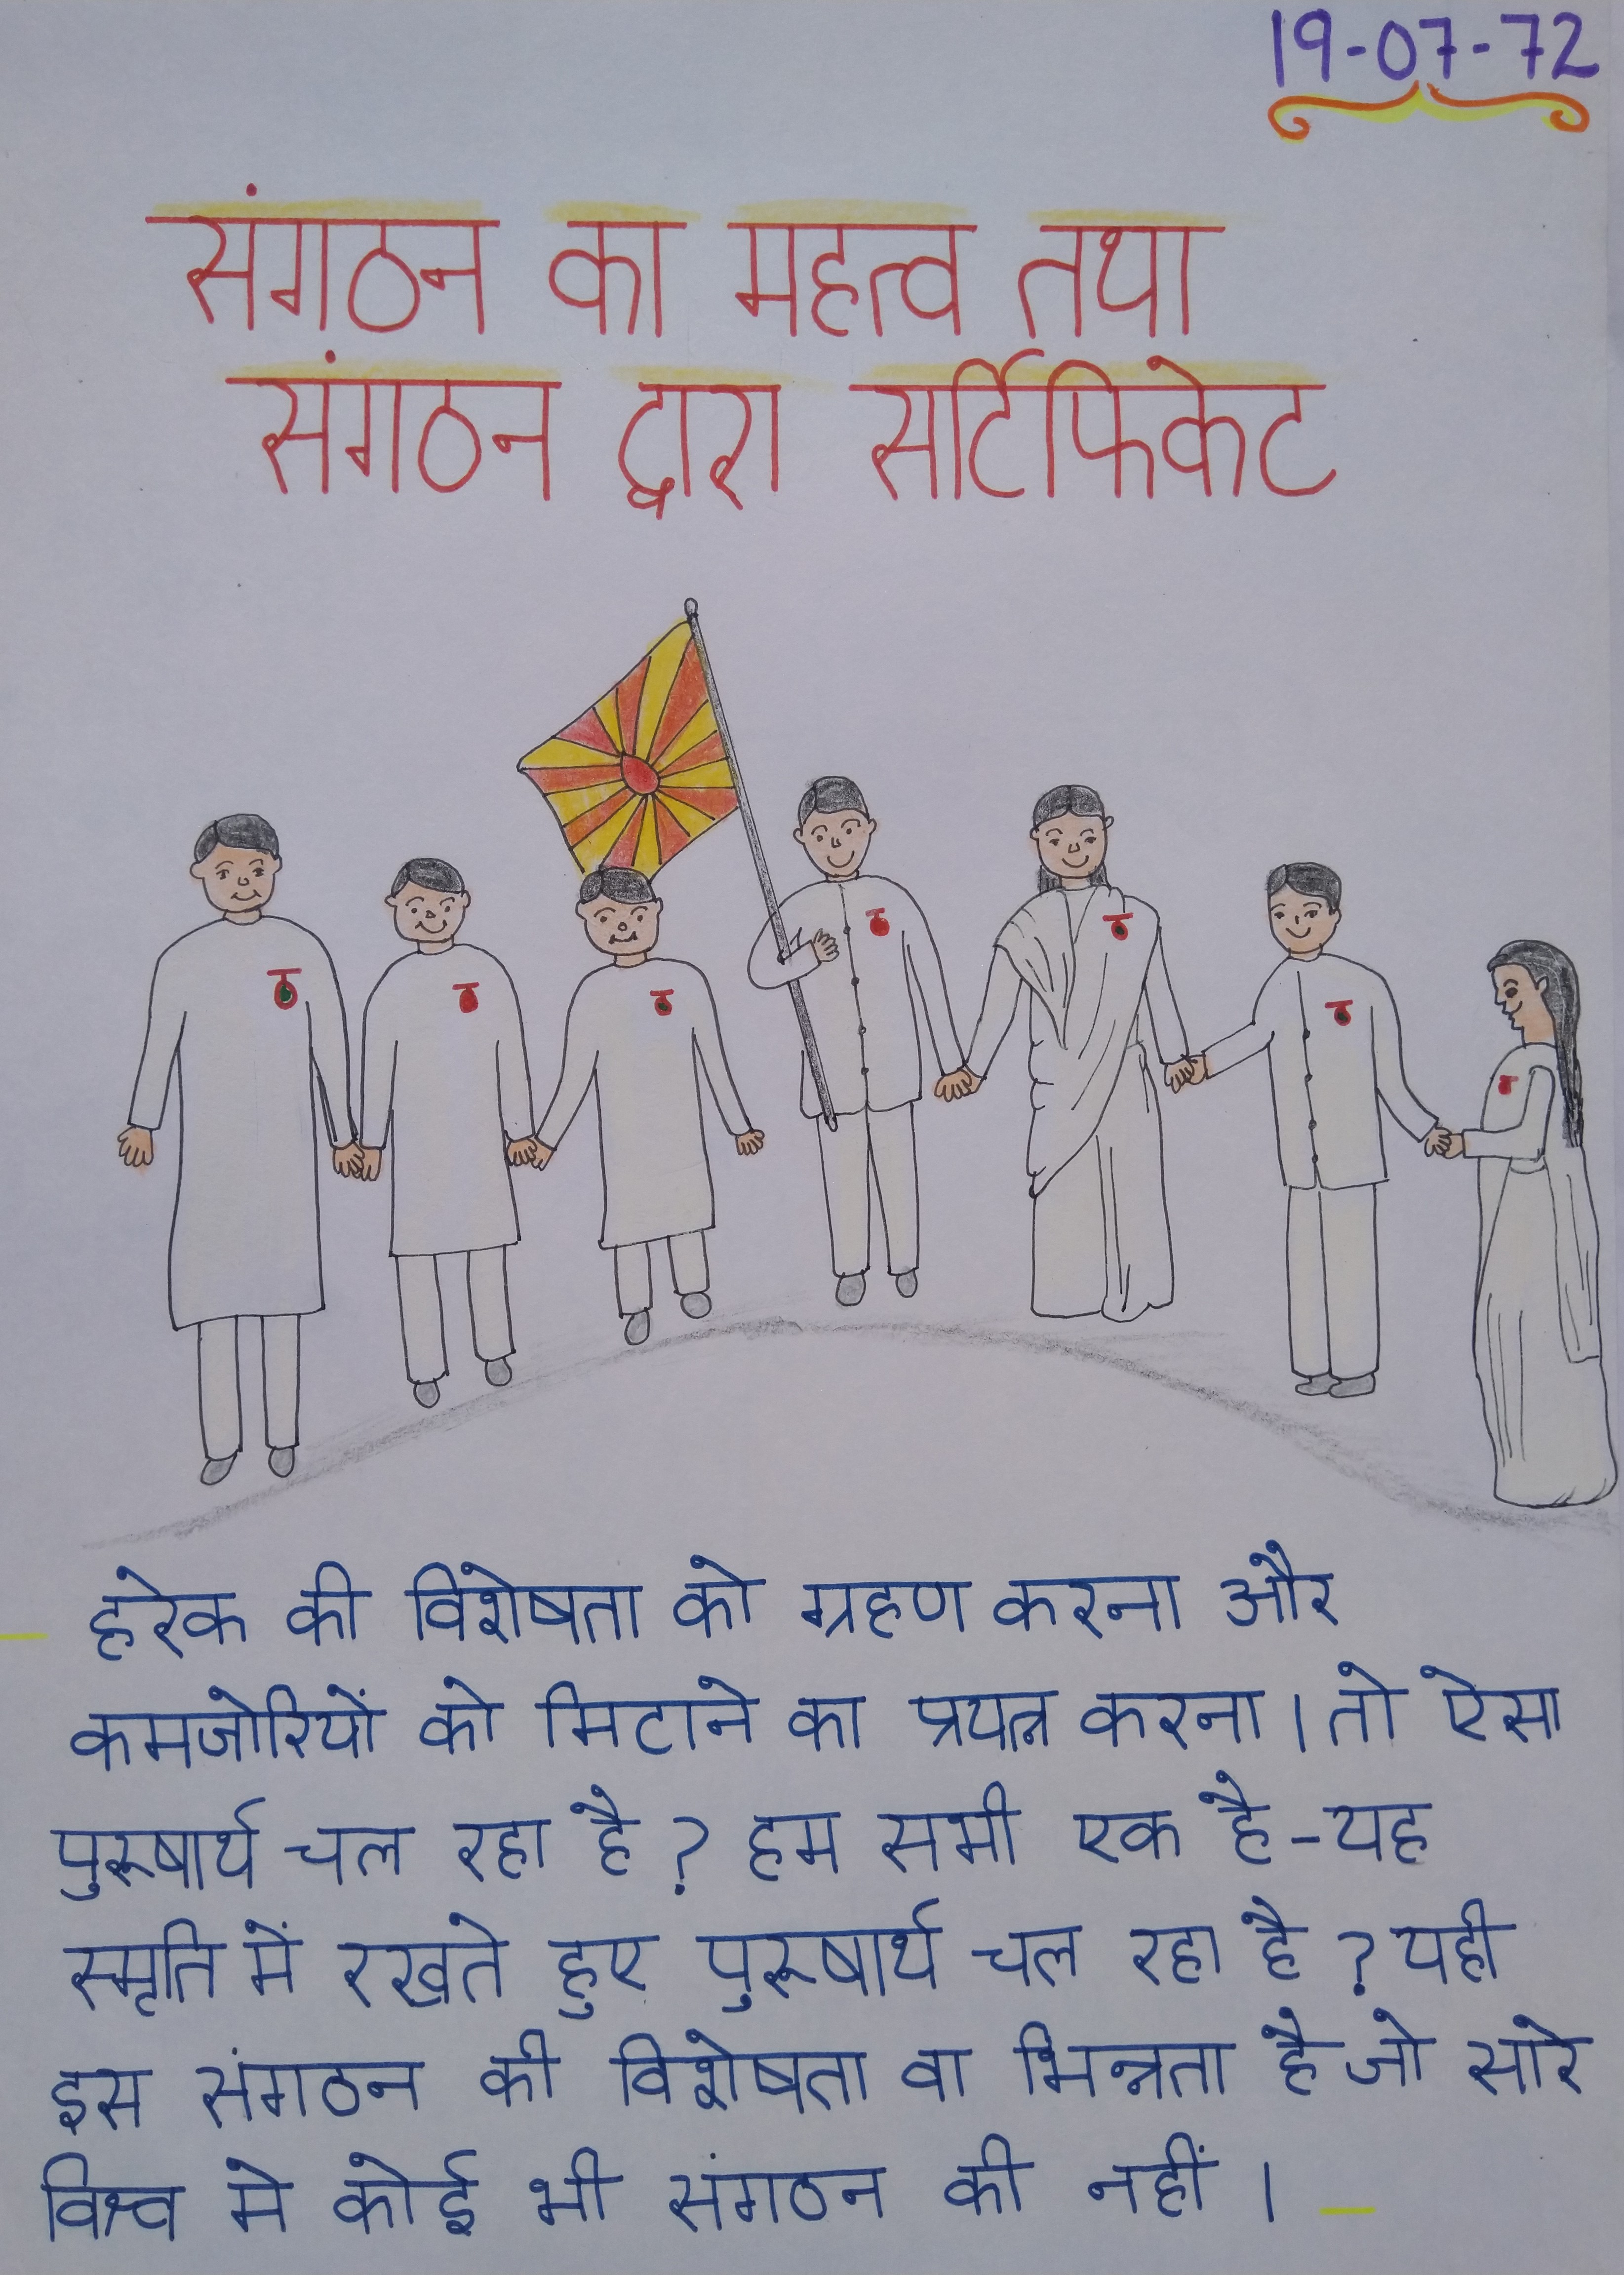 19-07-72
संगठन का महत्व तथा
संगठन द्वारा सर्टिफिकेट
हरेक की विशेषता को ग्रहण करना और
कमजोरियों को मिटाने का प्रयत्न करना । तो ऐसा
पुरूषार्थ चल रहा है ? हम सभी एक है - यह
स्मृति में रखते हुए पुरूषार्थ चल रहा है ? यही
इस संगठन की विशेषता वा भिन्नता है जो सारे
विश्व मे कोई भी संगठन की नहीं ।